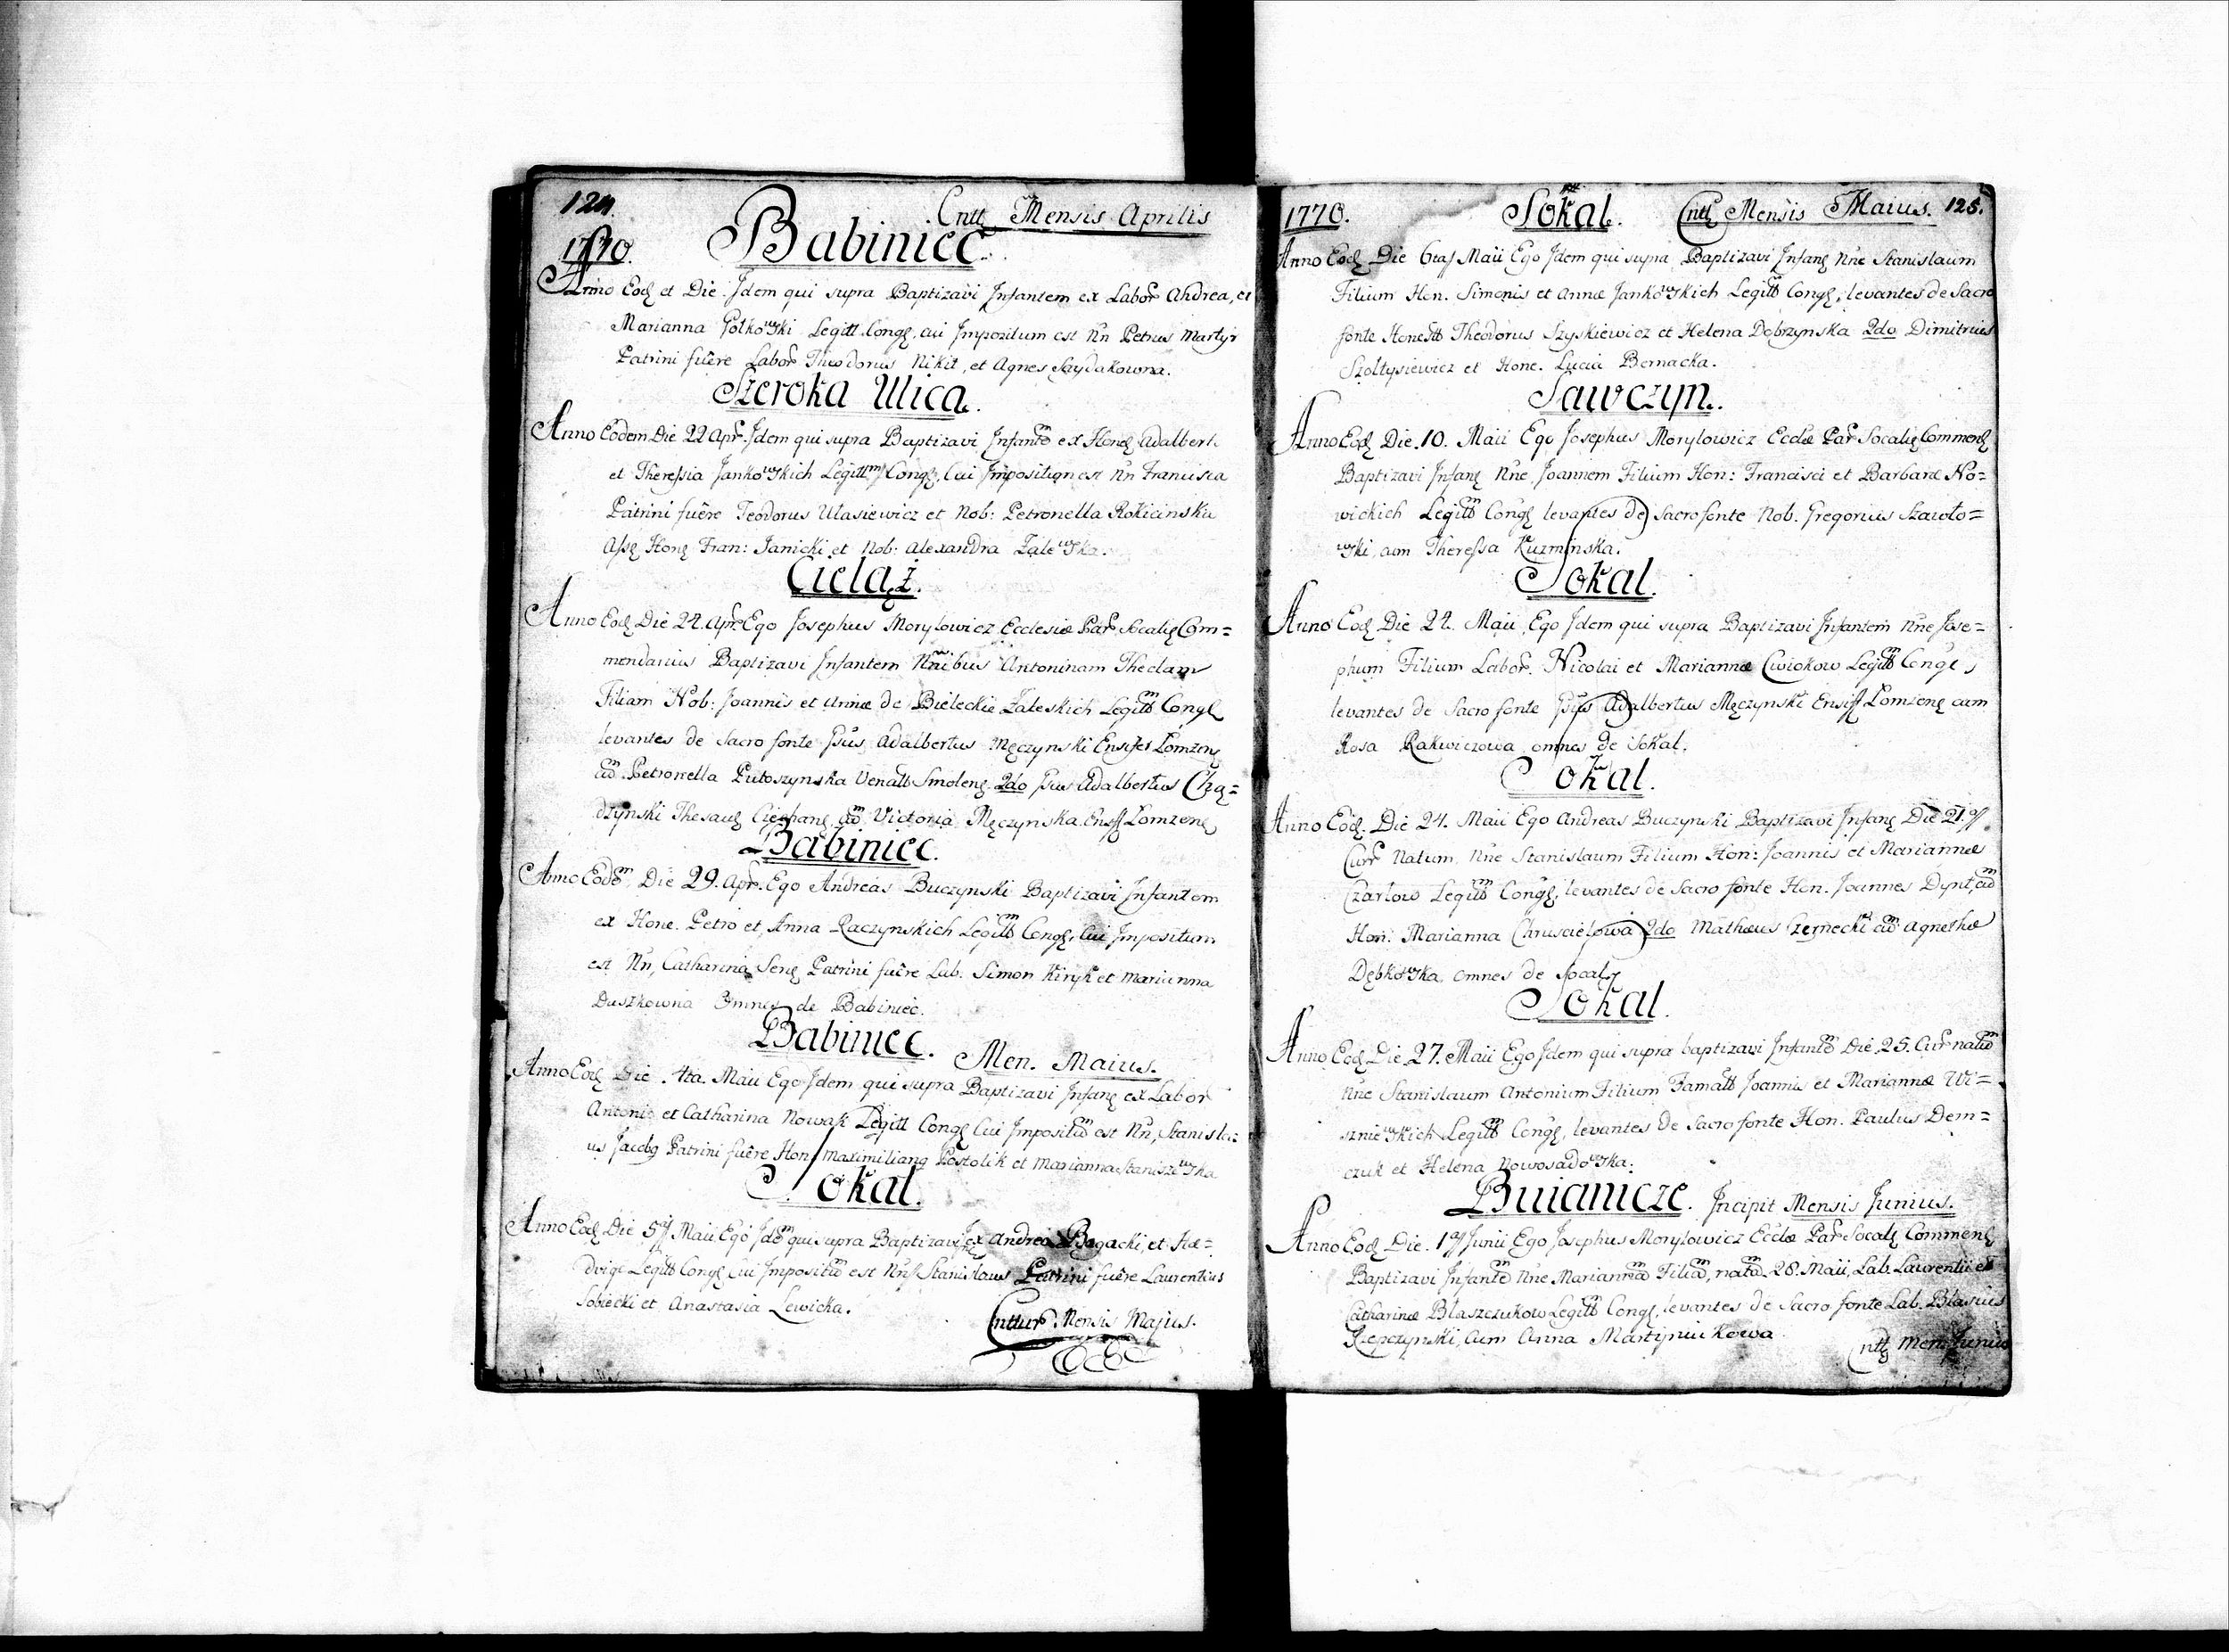 124.
Cntt Mensis Aprilis
1770. Babiniec.
Anno Eod et Die. Idem qui supra Baptizavi Infantem ex Labor Andrea, et
Marianna Gołkowski Legitt. Cong, cui Impozitum est Nn Petrus Martyr
Patrini fuêre Labor Theodorus Nikit, et Agnes Saydakowna.
Szeroka Ulica.
Anno Eodem Die 22 Apr. Idem qui supra Baptizavi Infant ex Hone Adalbert
et Theressia Jankowskich Legittm Cong, Cui Impositum est Nn Francisca
Patrini fuêre Teodorus Ulasiewicz et Nob: Petronella Rokicinska
Ass Hone Fran: Janicki et Nob: Alexandra Zalewska.
Cieląż.
Anno Eod Die 24. Apr. Ego Josephus Morylowicz Ecclesiæ Par Socali Com=
mendarius Baptizavi Infantem Nnibus Antoninam Theclam
Filiam Nob: Joannis et Annæ de Bieleckie Zaleskich Legitt Cong
levantes de Sacro fonte Psus Adalbertus Męczynski Ensifer Łomżens
cum Petronella Putoszynska Venatt Smolens. 2do Psus Adalbertus Chrzą=
dzynski Thesau Ciechane cum Victoria Męczynska Ensif Łomzens
Babiniec.
Anno Eodem Die 29. Apr. Ego Andreas Buczynski Baptizavi Infantem
ex Hone. Petro et Anna Raczynskich Legitt Cong, Cui Impositum
est Nn, Catharina Sene Patrini fuêre Lab. Simon Kiryk et Marianna
Duszkowna Omnes de Babiniec.
Babiniec. Men. Maius.
Anno Eod Die 4ta. Maii Ego Idem qui supra Baptizavi Infane ex Labor
Antonio et Catharina Nowak Legitt Cong Cui Impositum est Nn, Stanisla=
us Jacobg Patrini fuêre Hon Maximilianus Postolik et Marianna Staniszewska
Sokal.
Anno Eod Die 5 Maii Ego Idem qui supra Baptizavi ex Andrea Bogacki, et He=
dvige Legitt Cong Cui Impositum est Nn Stanislaus Patrini fuêre Laurentius
Sobiecki et Anastasia Lewicka.
Cnttur. Mensis Majus.
1770. Sokal. Cntt Mensis Maius. 125.
Anno Eod Die 6ta Maii Ego Idem qui supra Baptizavi Infane Nne Stanislaum
Filium Hon. Simonis et Annæ Jankowskich Legitt Cong, levantes de Sacro
fonte Honestt Theodorus Szyskiewicz et Helena Dobrzynska 2do Dimitrius
Szołtysiewicz et Hone. Lucia Bernacka.
Sawczyn.
Anno Eod Die. 10. Maii Ego Josephus Morylowicz Ecclæ Par Socali Commend
Baptizavi Infane Nne Joannem Filium Hon: Francisci et Barbaræ No=
wickich Legitt Cong levantes de Sacro fonte Nob. Gregorius Szawło=
wski, cum Theressa Kuzminska.
Sokal.
Anno Eod Die 24. Maii, Ego Idem qui supra Baptizavi Infantem Nne Jose=
phum Filium Labor. Nicolai et Mariannæ Cwiokow Legitt Cong,
levantes de Sacro fonte Psus Adalbertus Męczynski Ensif Łomzens cum
Rosa Rakwiczowa omnes de Sokal.
Sokal.
Anno Eod. Die 24. Maii Ego Andreas Buczynski Baptizavi Infane Die 21.
Curr Natum, Nne Stanislaum Filium Hon: Joannis et Mariannæ
Czartow Legitt Cong, levantes de Sacro fonte Hon. Joannes Dynt, cum
Hon: Marianna Chruscielowa 2do Mathæus Czernecki cum Agnethe
Dębkowska omnes de Socal
Sokal.
Anno Eod Die 27. Maii Ego Idem qui supra baptizavi Infant Die 25. Cur natum
Nne Stanislaum Antonium Filium Famatt Joannis et Mariannæ Wi=
szniewskich Legitt Cong, levantes de Sacro fonte Hon. Paulus Dem=
czuk et Helena Nowosadowska.
Buianicze. Incipit Mensis Junius.
Anno Eod Die. 1 Junii Ego Josephus Morylowicz Ecclæ Par Socali Commend
Baptizavi Infant Nne Mariannam Filiam, natam 28. Maii, Lab. Laurentii et
Catharinæ Blaszczukow Legitt Cong, levantes de Sacro fonte Lab. Blasius
Rzepczynski, cum Anna Martyniukowa.
Cntt Men. Junius